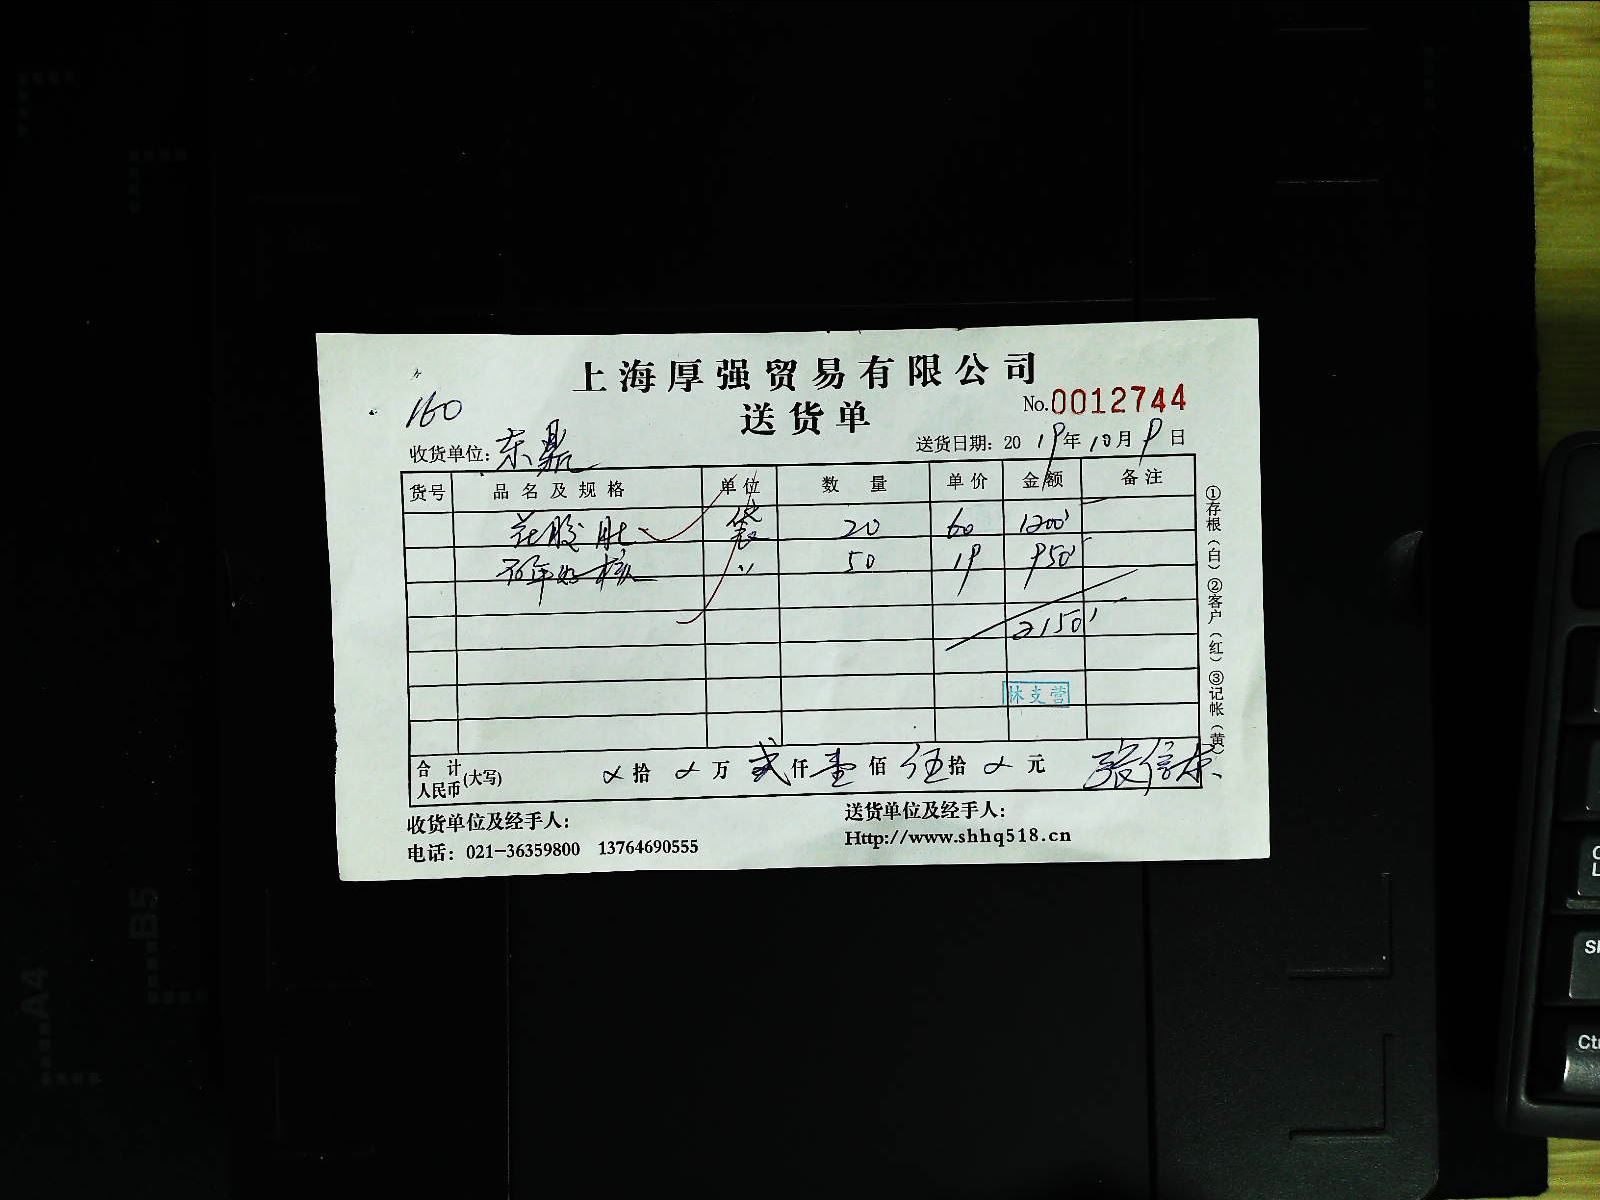 上海厚强贸易有限公司
160
送货单
No.0012744
收货单位: 东鼎
送货日期: 2019年10月9日
货号 品名及规格 单位 数量 单价 金额 备注
花胶肚 袋 20 60 1200
百年好 〃 50 19 950
2150
林支营
合计人民币(大写) 拾 万 贰仟壹佰伍拾 元
张信东
收货单位及经手人:
送货单位及经手人:
电话: 021-36359800 13764690555
Http://www.shhq518.cn
①存根(白)②客户(红)③记帐(黄)
B5
A4
Ctr